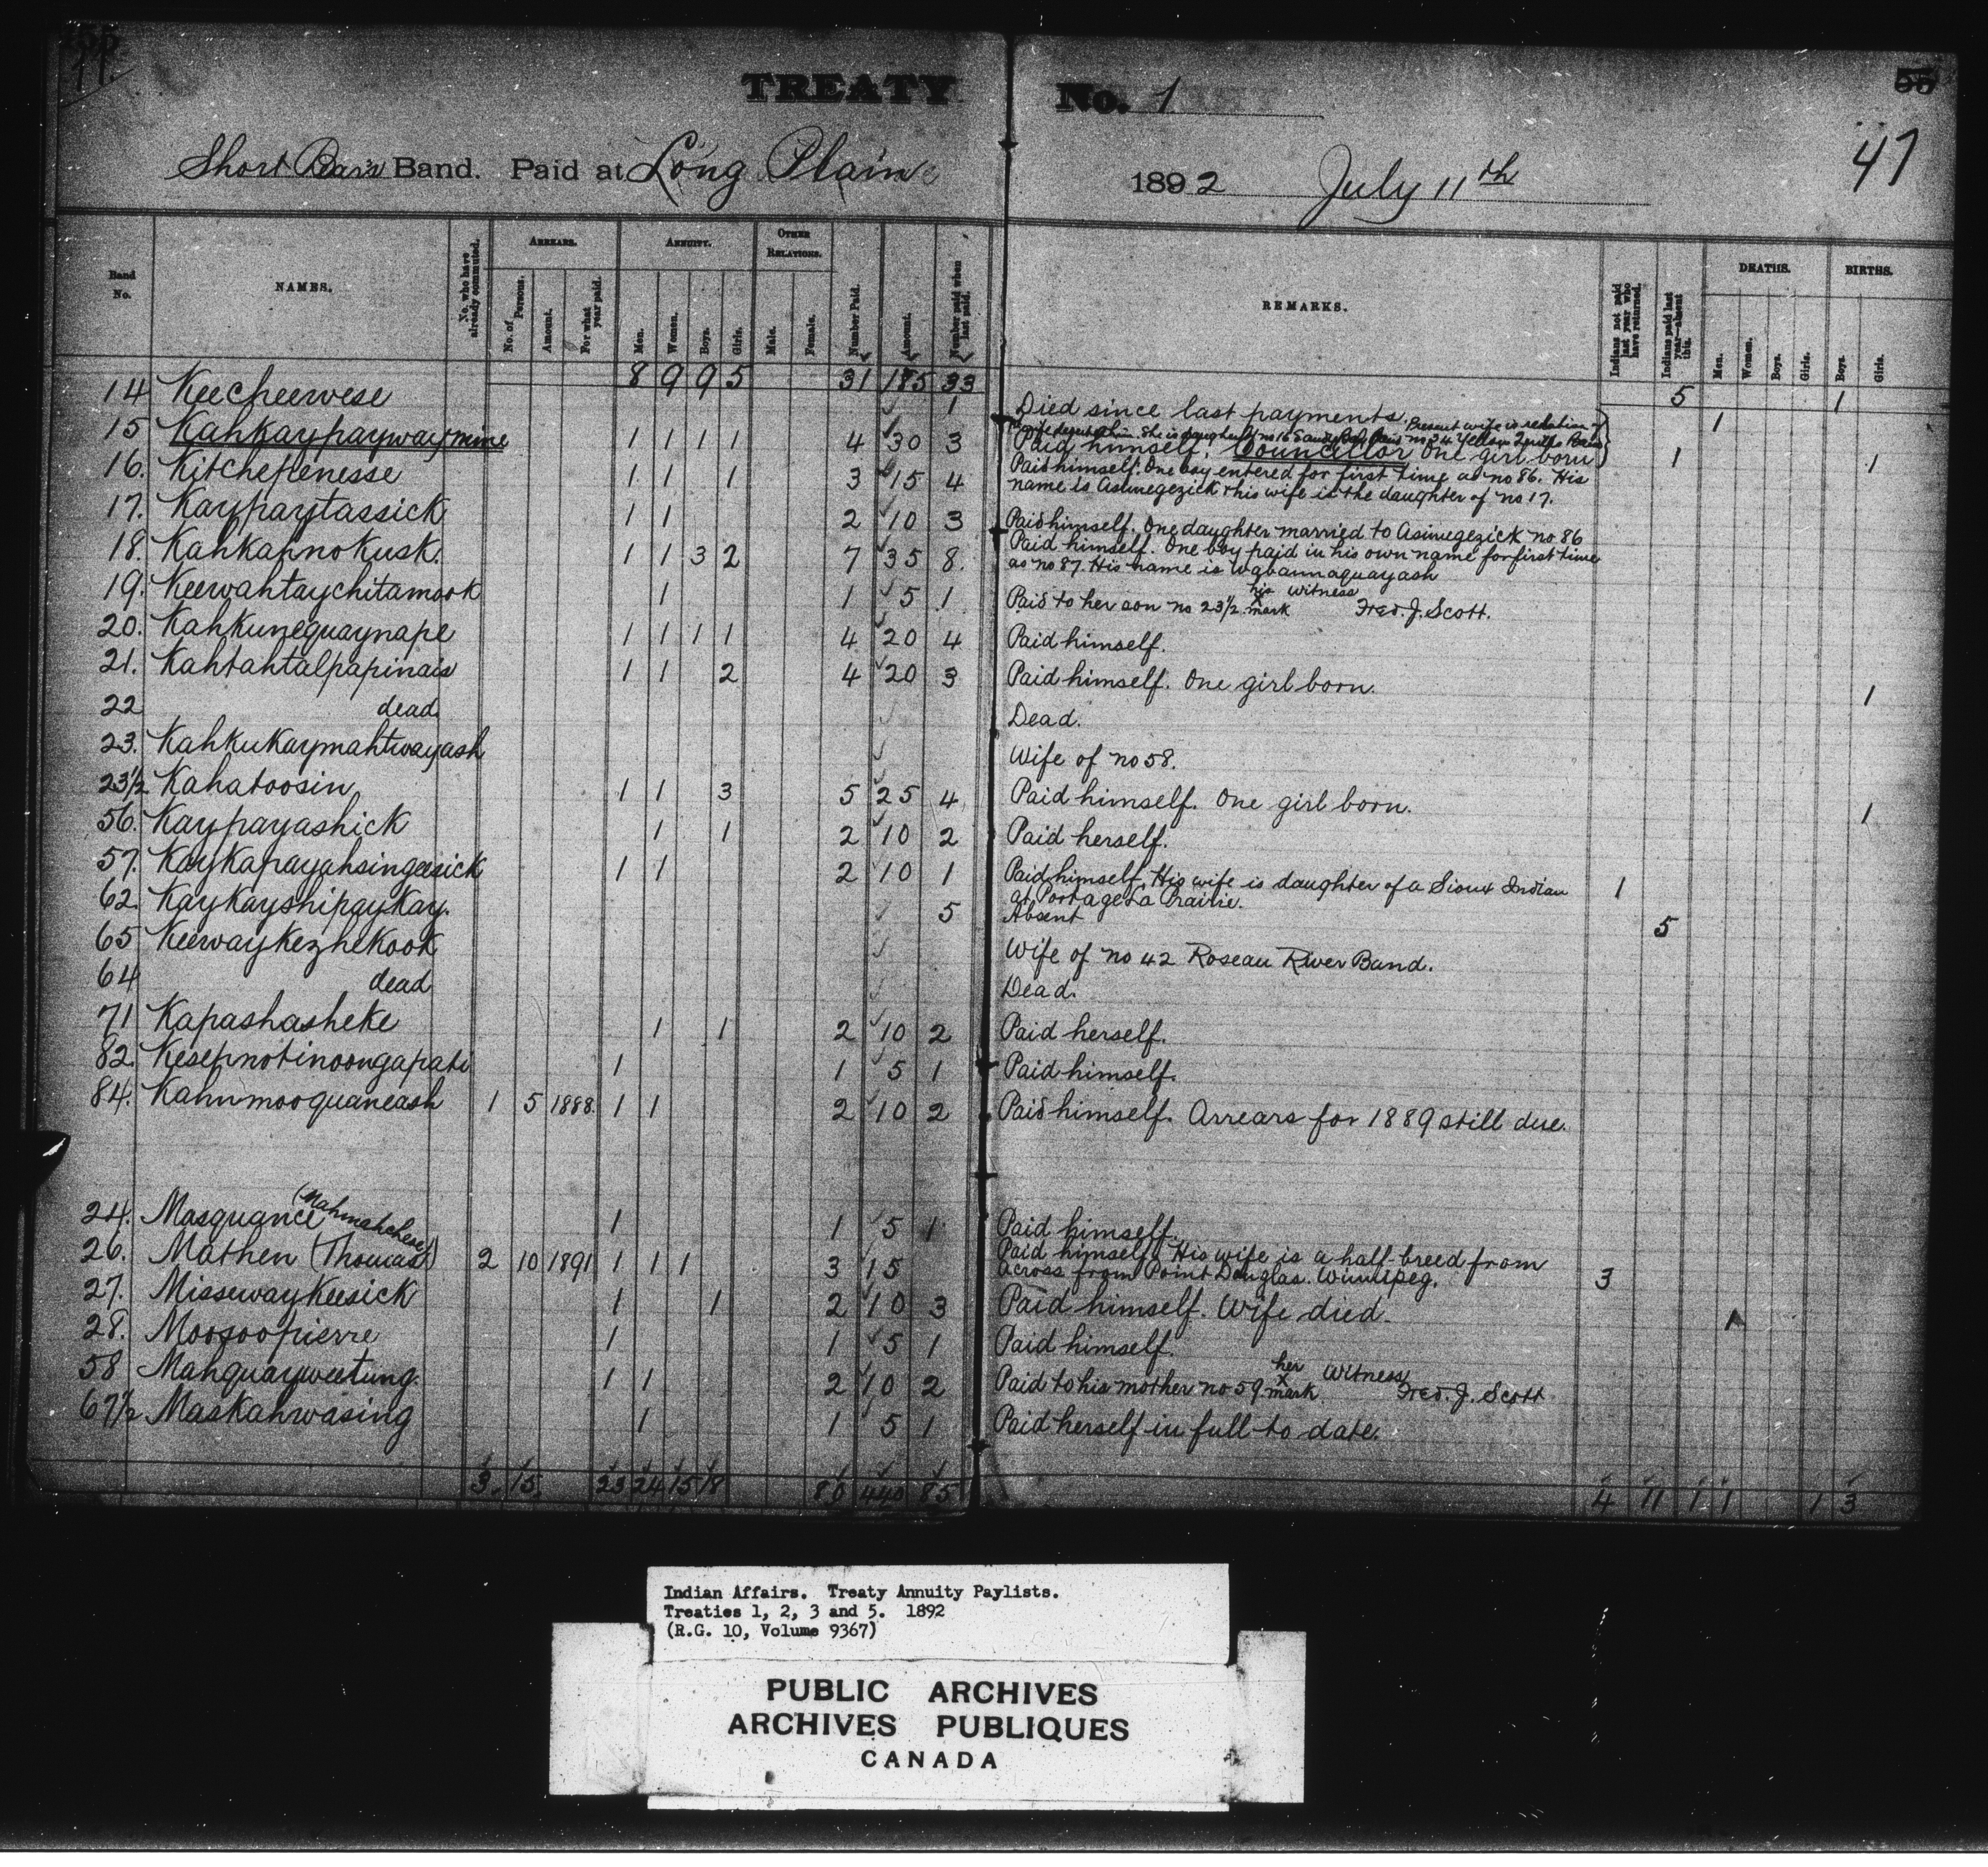 TREATY No. 1
47
Short Bear's Band. Paid at Long Plain 1892 July 11th
Band No.
NAMES.
No. who have already commuted.
ARREARS.
No. of Persons.
Amount.
For what year paid.
ANNUITY.
Men.
Women.
Boys.
Girls.
OTHER RELATIONS.
Male.
Female.
Number Paid.
Amount.
Number paid when last paid.
REMARKS.
Indians not paid last year who have returned.
Indians paid last year—absent this.
DEATHS.
Men.
Women.
Boys.
Girls.
BIRTHS.
Boys.
Girls.
8 9 9 5 31 185 33 5 1
14 Keecheewese 1 Died since last payments. 1
Present wife is relation
15 Kahkaypaywaymine 1 1 1 1 4 30 3 Paid himself. Councillor One girl born 1 1
16. Kitchepenesse 1 1 1 3 15 4 Paid himself. One boy entered for first time as no 86. His
name is Asinegezick & his wife is the daughter of no 17.
17. Kaypaytassick 1 1 2 10 3 Paid himself. One daughter married to Asinegezick no 86
18. Kahkahnokusk. 1 1 3 2 7 35 8. Paid himself. One boy paid in his own name for first time
as no 87. His name is Wabannaquayash
19. Keewahtaychitamook 1 1 5 1 Paid to her son no 23½ his x mark witness Fred. J. Scott.
20. Kahkunequaynape 1 1 1 1 4 20 4 Paid himself.
21. Kahtahtalpapinais 1 1 2 4 20 3 Paid himself. One girl born. 1
22 dead Dead.
23. Kahkukaymahtwayash Wife of no 58.
23½ Kahatoosin 1 1 3 5 25 4 Paid himself. One girl born. 1
56. Kaypayashick 1 1 2 10 2 Paid herself.
57. Kaykapayahsingeesick 1 1 2 10 1 Paid himself. His wife is daughter of a Sioux Indian 1
at Portage La Prairie.
62. Kaykayshipaykay. 5 Absent 5
65 Keewaykezhekook Wife of no 42 Roseau River Band.
64 dead Dead.
71 Kapashasheke 1 1 2 10 2 Paid herself.
82. Kesepnotinoongapati 1 1 5 1 Paid himself.
84. Kahnmooquaneash 1 5 1888. 1 1 2 10 2 Paid himself. Arrears for 1889 still due.
24. Masquance (Mahmahchese) 1 1 5 1 Paid himself.
26. Mathen (Thomas) 2 10 1891 1 1 1 3 15 Paid himself. His wife is a half-breed from
across from Point Douglas. Winnipeg. 3
27. Missewaykeesick 1 1 2 10 3 Paid himself. Wife died. 1
28. Moosoopierre 1 1 5 1 Paid himself.
58 Mahquayweetung. 1 1 2 10 2 Paid to his mother no 59. her x mark Witness Fred. J. Scott
67½ Maskahwasing 1 1 5 1 Paid herself in full to date.
3. 15. 23 24 15 18 80 440 85 4 11 1 1 1 3
Indian Affairs. Treaty Annuity Paylists.
Treaties 1, 2, 3 and 5. 1892
(R.G. 10, Volume 9367)
PUBLIC ARCHIVES
ARCHIVES PUBLIQUES
CANADA